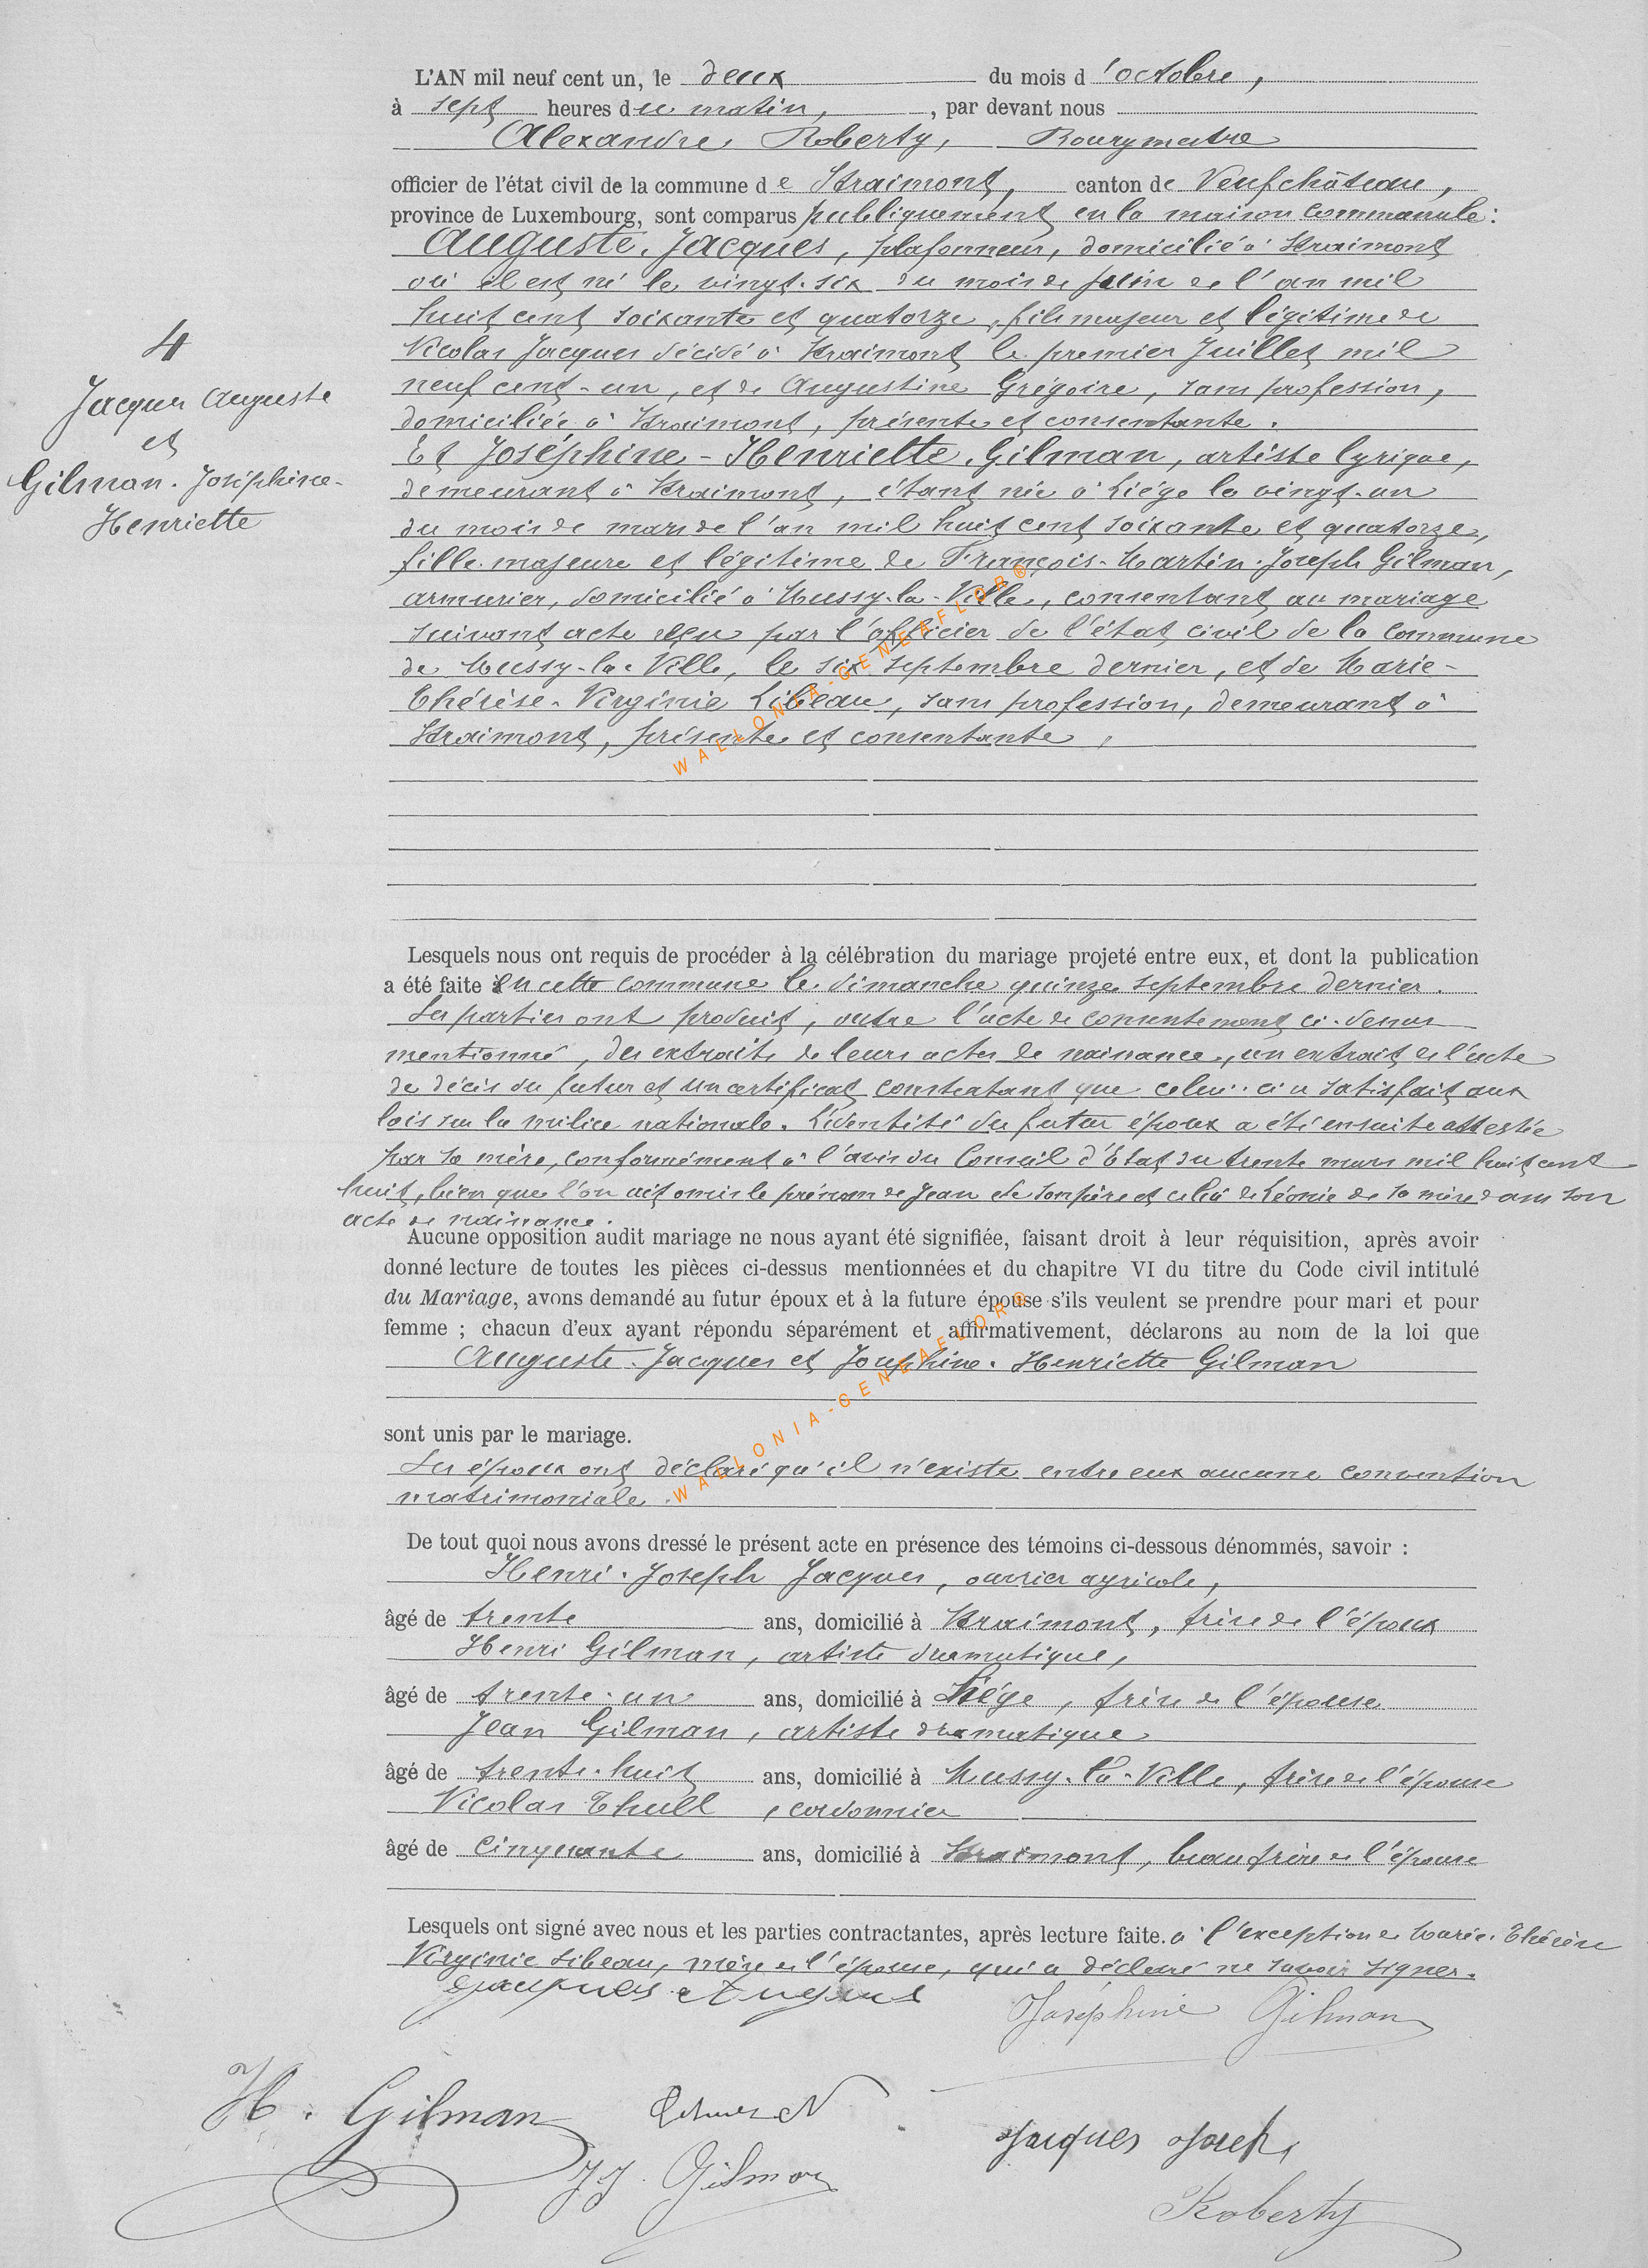 L'AN mil neuf cent un, le deux du mois d'octobre,
à sept heures du matin, , par devant nous
Alexandre Roberty, Bourgmestre
officier de l'état civil de la commune de Straimont, canton de Neufchâteau,
province de Luxembourg, sont comparus publiquement en la maison communale:
Auguste. Jacques, plafonneur, domicilié à Straimont
où il est né le vingt-six du mois de juin de l'an mil
huit cent soixante et quatorze, fils majeur et légitime de
Nicolas Jacques décédé à Straimont le premier Juillet mil
neuf cent-un, et de Augustine Grégoire, sans profession,
domiciliée à Straimont, présente et consentante.
Et Joséphine-Henriette. Gilman, artiste lyrique,
demeurant à Straimont, étant née à Liége le vingt-un
du mois de mars de l'an mil huit cent soixante et quatorze,
fille majeure et légitime de François-Martin-Joseph Gilman,
armurier, domicilié à Mussy-la-Ville, consentant au mariage
suivant acte reçu par l'officier de l'état civil de la commune
de Mussy-la-Ville, le six septembre dernier, et de Marie-
Thérèse-Virginie Libeau, sans profession, demeurant à
Straimont, présente et consentante,
4
Jacques Auguste
et
Gilman. Joséphine-
Henriette
WALLONIA-GENEAFLOR®
Lesquels nous ont requis de procéder à la célébration du mariage projeté entre eux, et dont la publication
a été faite en cette commune le dimanche quinze septembre dernier.
Les parties ont produit, outre l'acte de consentement ci-dessus
mentionné, des extraits de leurs actes de naissance, un extrait de l'acte
de décès du futur et un certificat constatant que celui-ci a satisfait aux
lois sur la milice nationale. L'identité du futur époux a été ensuite attestée
par sa mère, conformément à l'avis du Conseil d'Etat du trente mars mil huit cent
huit, bien que l'on ait omis le prénom de Jean de son père et celui de Léonie de sa mère dans son
acte de naissance.
Aucune opposition audit mariage ne nous ayant été signifiée, faisant droit à leur réquisition, après avoir
donné lecture de toutes les pièces ci-dessus mentionnées et du chapitre VI du titre du Code civil intitulé
du Mariage, avons demandé au futur époux et à la future épouse s'ils veulent se prendre pour mari et pour
femme ; chacun d'eux ayant répondu séparément et affirmativement, déclarons au nom de la loi que
Auguste. Jacques et Joséphine. Henriette Gilman
WALLONIA-GENEAFLOR®
sont unis par le mariage.
Les époux ont déclaré qu'il n'existe entre eux aucune convention
matrimoniale.
De tout quoi nous avons dressé le présent acte en présence des témoins ci-dessous dénommés, savoir :
Henri. Joseph Jacques, ouvrier agricole,
âgé de trente ans, domicilié à Straimont, frère de l'époux
Henri Gilman, artiste dramatique,
âgé de trente-un ans, domicilié à Liége, frère de l'épouse
Jean Gilman, artiste dramatique
âgé de trente-huit ans, domicilié à Mussy-la-Ville, frère de l'épouse
Nicolas Thull, cordonnier
âgé de cinquante ans, domicilié à Straimont, beau frère de l'épouse
Lesquels ont signé avec nous et les parties contractantes, après lecture faite. à l'exception de Marie. Thérèse
Virginie Libeau, mère de l'épouse, qui a déclaré ne savoir signer.
Jacques Auguste
Joséphine Gilman
H. Gilman
Jacques Joseph
JJ. Gilman
Roberty